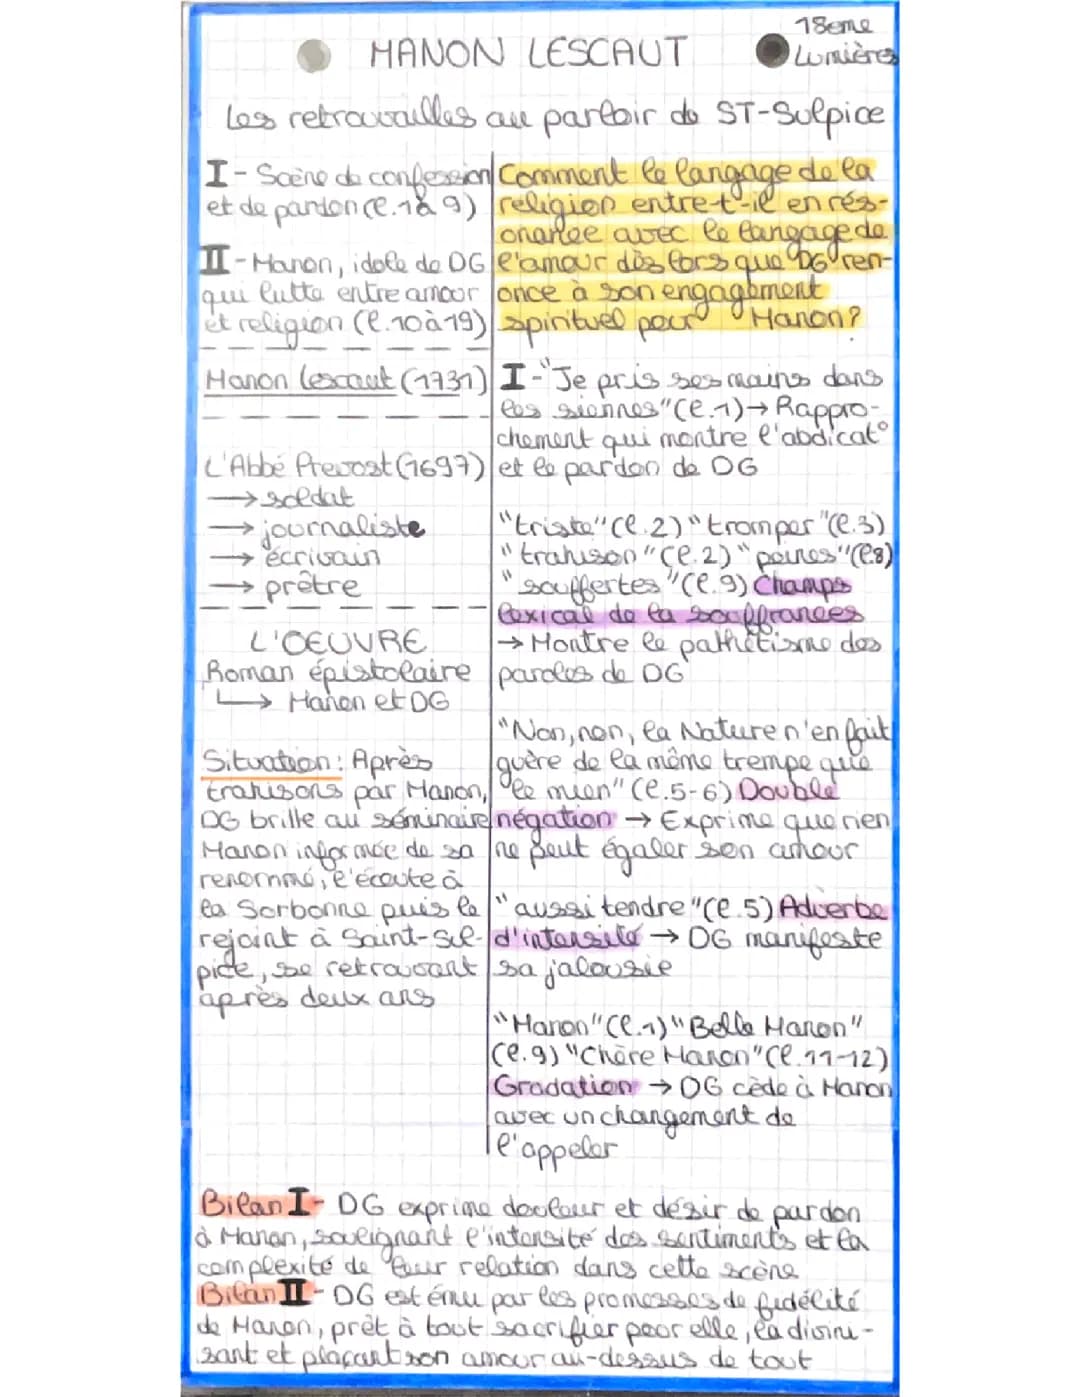 MANON LESCAUT
18eme
Lumières
Les retrouvailles au parloir de ST-Sulpice
I - Scène de confession
et de pardon (l.1à 9)
II - Manon, idole de DG
qui lutte entre amour
et religion (l.10à19)
Manon Lescaut (1731)
L'Abbé Prevost (1697)
→ soldat
→ journaliste
→ écrivain
→ prêtre
L'OEUVRE
Roman épistolaire
↳ Manon et DG
Situation : Après
trahisons par Manon,
DG brille au séminaire
Manon informée de sa
renommé, l'écoute à
la Sorbonne puis le
rejoint à Saint-Sul-
pice, se retrouvant
après deux ans
Comment le langage de la
religion entre-t-il en rés-
onance avec le langage de
l'amour dès lors que DG ren-
once à son engagement
spirituel pour Manon ?
I - "Je pris ses mains dans
les siennes" (l.1) → Rappro-
chement qui montre l'abdicat°
et le pardon de DG
"triste" (l.2) "tromper" (l.3)
"trahison" (l.2) "peines" (l.8)
"souffertes" (l.9) Champs
lexical de la souffrances
→ Montre le pathétisme des
paroles de DG
"Non, non, la Nature n'en fait
guère de la même trempe que
le mien" (l.5-6) Double
négation → Exprime que rien
ne peut égaler son amour
"aussi tendre" (l.5) Adverbe
d'intensité → DG manifeste
sa jalousie
"Manon" (l.1) "Belle Manon"
(l.9) "Chère Manon" (l.11-12)
Gradation → DG cède à Manon
avec un changement de
l'appeler
Bilan I - DG exprime douleur et désir de pardon
à Manon, soulignant l'intensité des sentiments et la
complexité de leur relation dans cette scène
Bilan II - DG est ému par les promesses de fidélité
de Manon, prêt à tout sacrifier pour elle, la divini-
sant et plaçant son amour au-dessus de tout